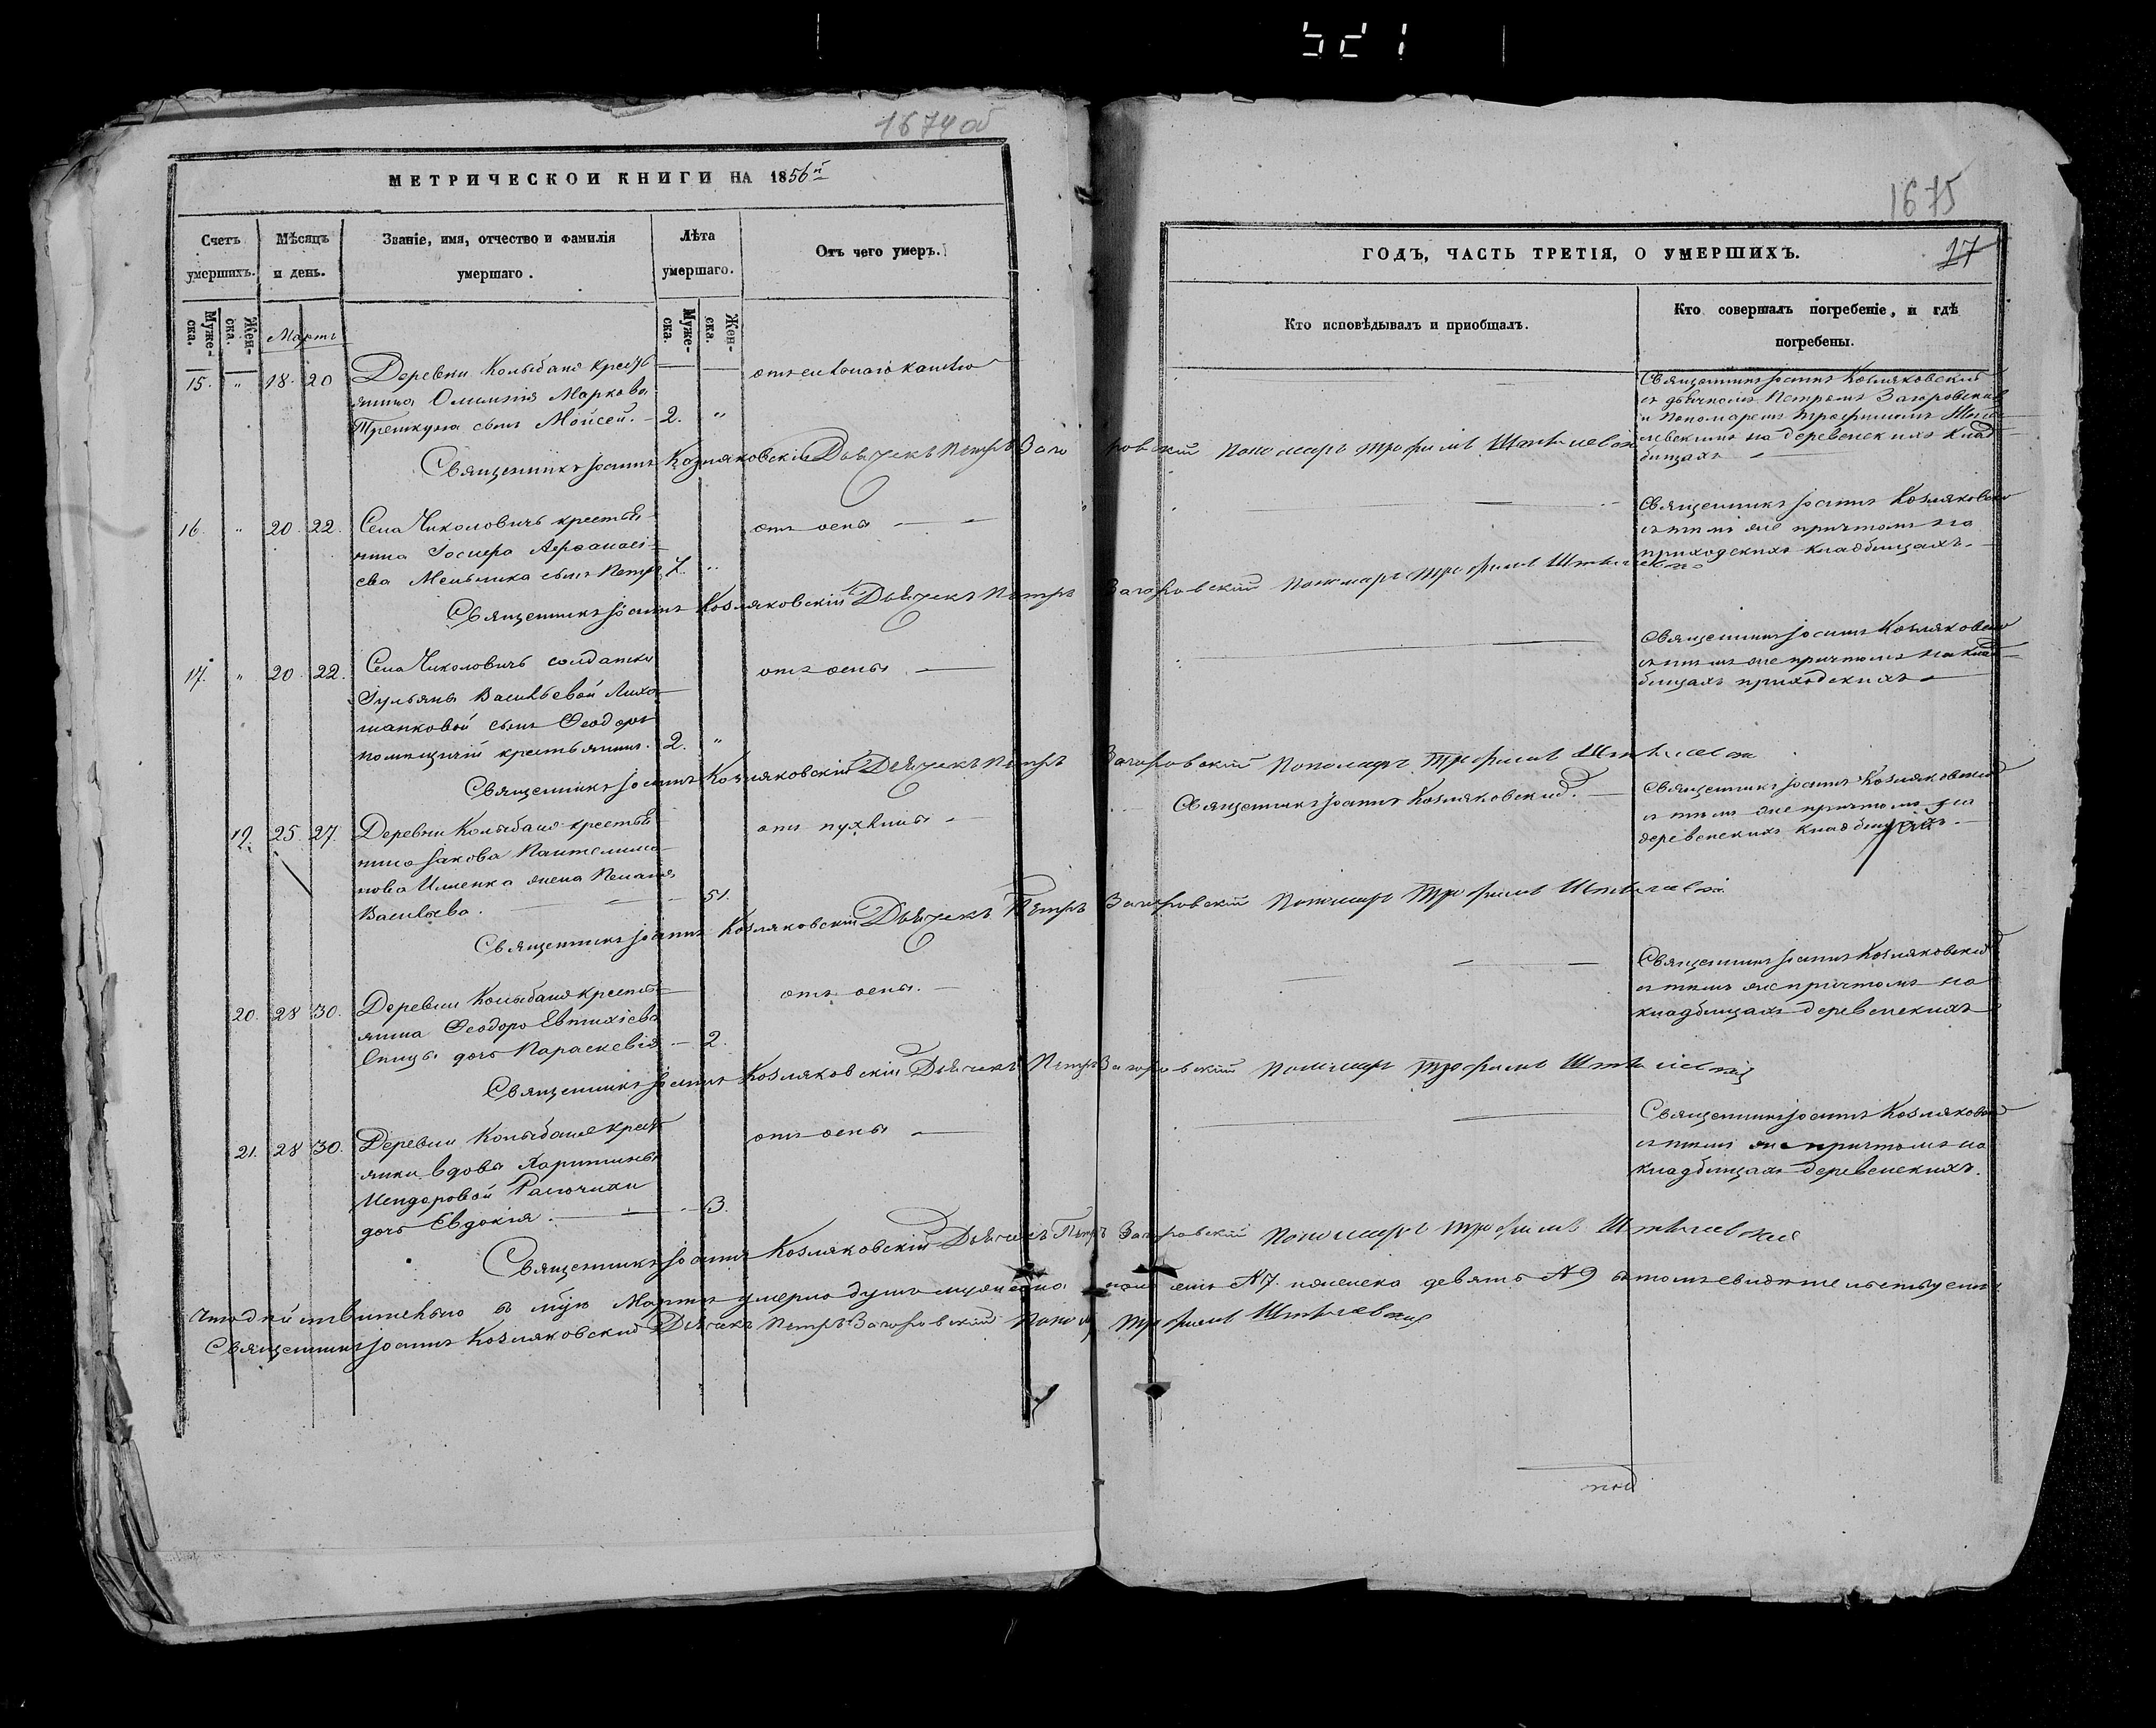 521
1674 об
МЕТРИЧЕСКОИ КНИГИ НА 1856й
Счетъ умершихъ.
Мѣсяцъ и день.
Званіе, имя, отчество и фамилія умершаго.
Лѣта умершаго.
Отъ чего умеръ.
Муже-ска.
Жен-ска.
Мартъ
Муже-ска.
Жен-ска.
15. " 18. 20
Деревни Колыбани кресть
янина Маркова
сынъ Моѵсей. 2. "
отъ кашлю
Священникъ Іоаннъ Козляковскій Дьячекъ Петръ Заго
16. " 20. 22.
Села Чиколовичъ крестья
нина Аѳанасі
ева Мельника сынъ Петръ 7. "
отъ оспы
Священникъ Іоаннъ Козляковскій Дьячекъ Петръ
17. " 20. 22.
Села Чиколовичъ солдатки
Іульяны Васильевой Лихо
шапковой сынъ Ѳеодоръ
помѣщичій крестьянинъ. 2. "
отъ оспы
Священникъ Іоаннъ Козляковскій Дьячекъ Петръ
19. 25. 27.
Деревни Колыбани крестья
нина Іакова Пантелимо
нова жена Пелагія
Васильева. 51.
отъ пухлины
Священникъ Іоаннъ Козляковскій Дьячекъ Петръ
20. 28 30.
Деревни Колыбани кресть
янина Ѳеодора Евтихіева
Спицы дочь Параскевія 2.
отъ оспы.
Священникъ Іоаннъ Козляковскій Дьячекъ Петръ
21. 28 30.
Деревни Колыбани крест
янки вдовы Харитины
дочь Евдокія. 3.
отъ оспы
Священникъ Іоаннъ Козляковскій Дьячекъ Петръ
Что дѣйствительно въ Мартѣ умерло душъ
Священникъ Іоаннъ Козляковскій Дьячекъ Петръ Загоровскій
1675
ГОДЪ, ЧАСТЬ ТРЕТІЯ, О УМЕРШИХЪ.
17
Кто исповѣдывалъ и приобщалъ.
Кто совершалъ погребеніе, и гдѣ погребены.
Священникъ Іоаннъ Козляковскій
съ дьячкомъ Петромъ Загоровскимъ
и Пономаремъ Трофимомъ
на деревенскихъ клад
бищахъ
ровскій Пономарь Трофимъ
Священникъ Іоаннъ Козляковскій
съ тѣмъ же причтомъ на
приходскихъ кладбищахъ.
Загоровскій Пономарь Трофимъ
Священникъ Іоаннъ Козляковскій
съ тѣмъ же причтомъ на клад
бищахъ приходскихъ
Загоровскій Пономарь Трофимъ
Священникъ Іоаннъ Козляковскій.
Священникъ Іоаннъ Козляковскій
съ тѣмъ же причтомъ на
деревенскихъ кладбищахъ.
Загоровскій Пономарь Трофимъ
Священникъ Іоаннъ Козляковскій
съ тѣмъ же причтомъ на
кладбищахъ деревенскихъ
Загоровскій Пономарь Трофимъ
Священникъ Іоаннъ Козляковскій
съ тѣмъ же причтомъ на
кладбищахъ деревенскихъ.
Загоровскій Пономарь Трофимъ
№ 7. женска девять № 9 въ томъ свидѣтельствуемъ
Трофимъ